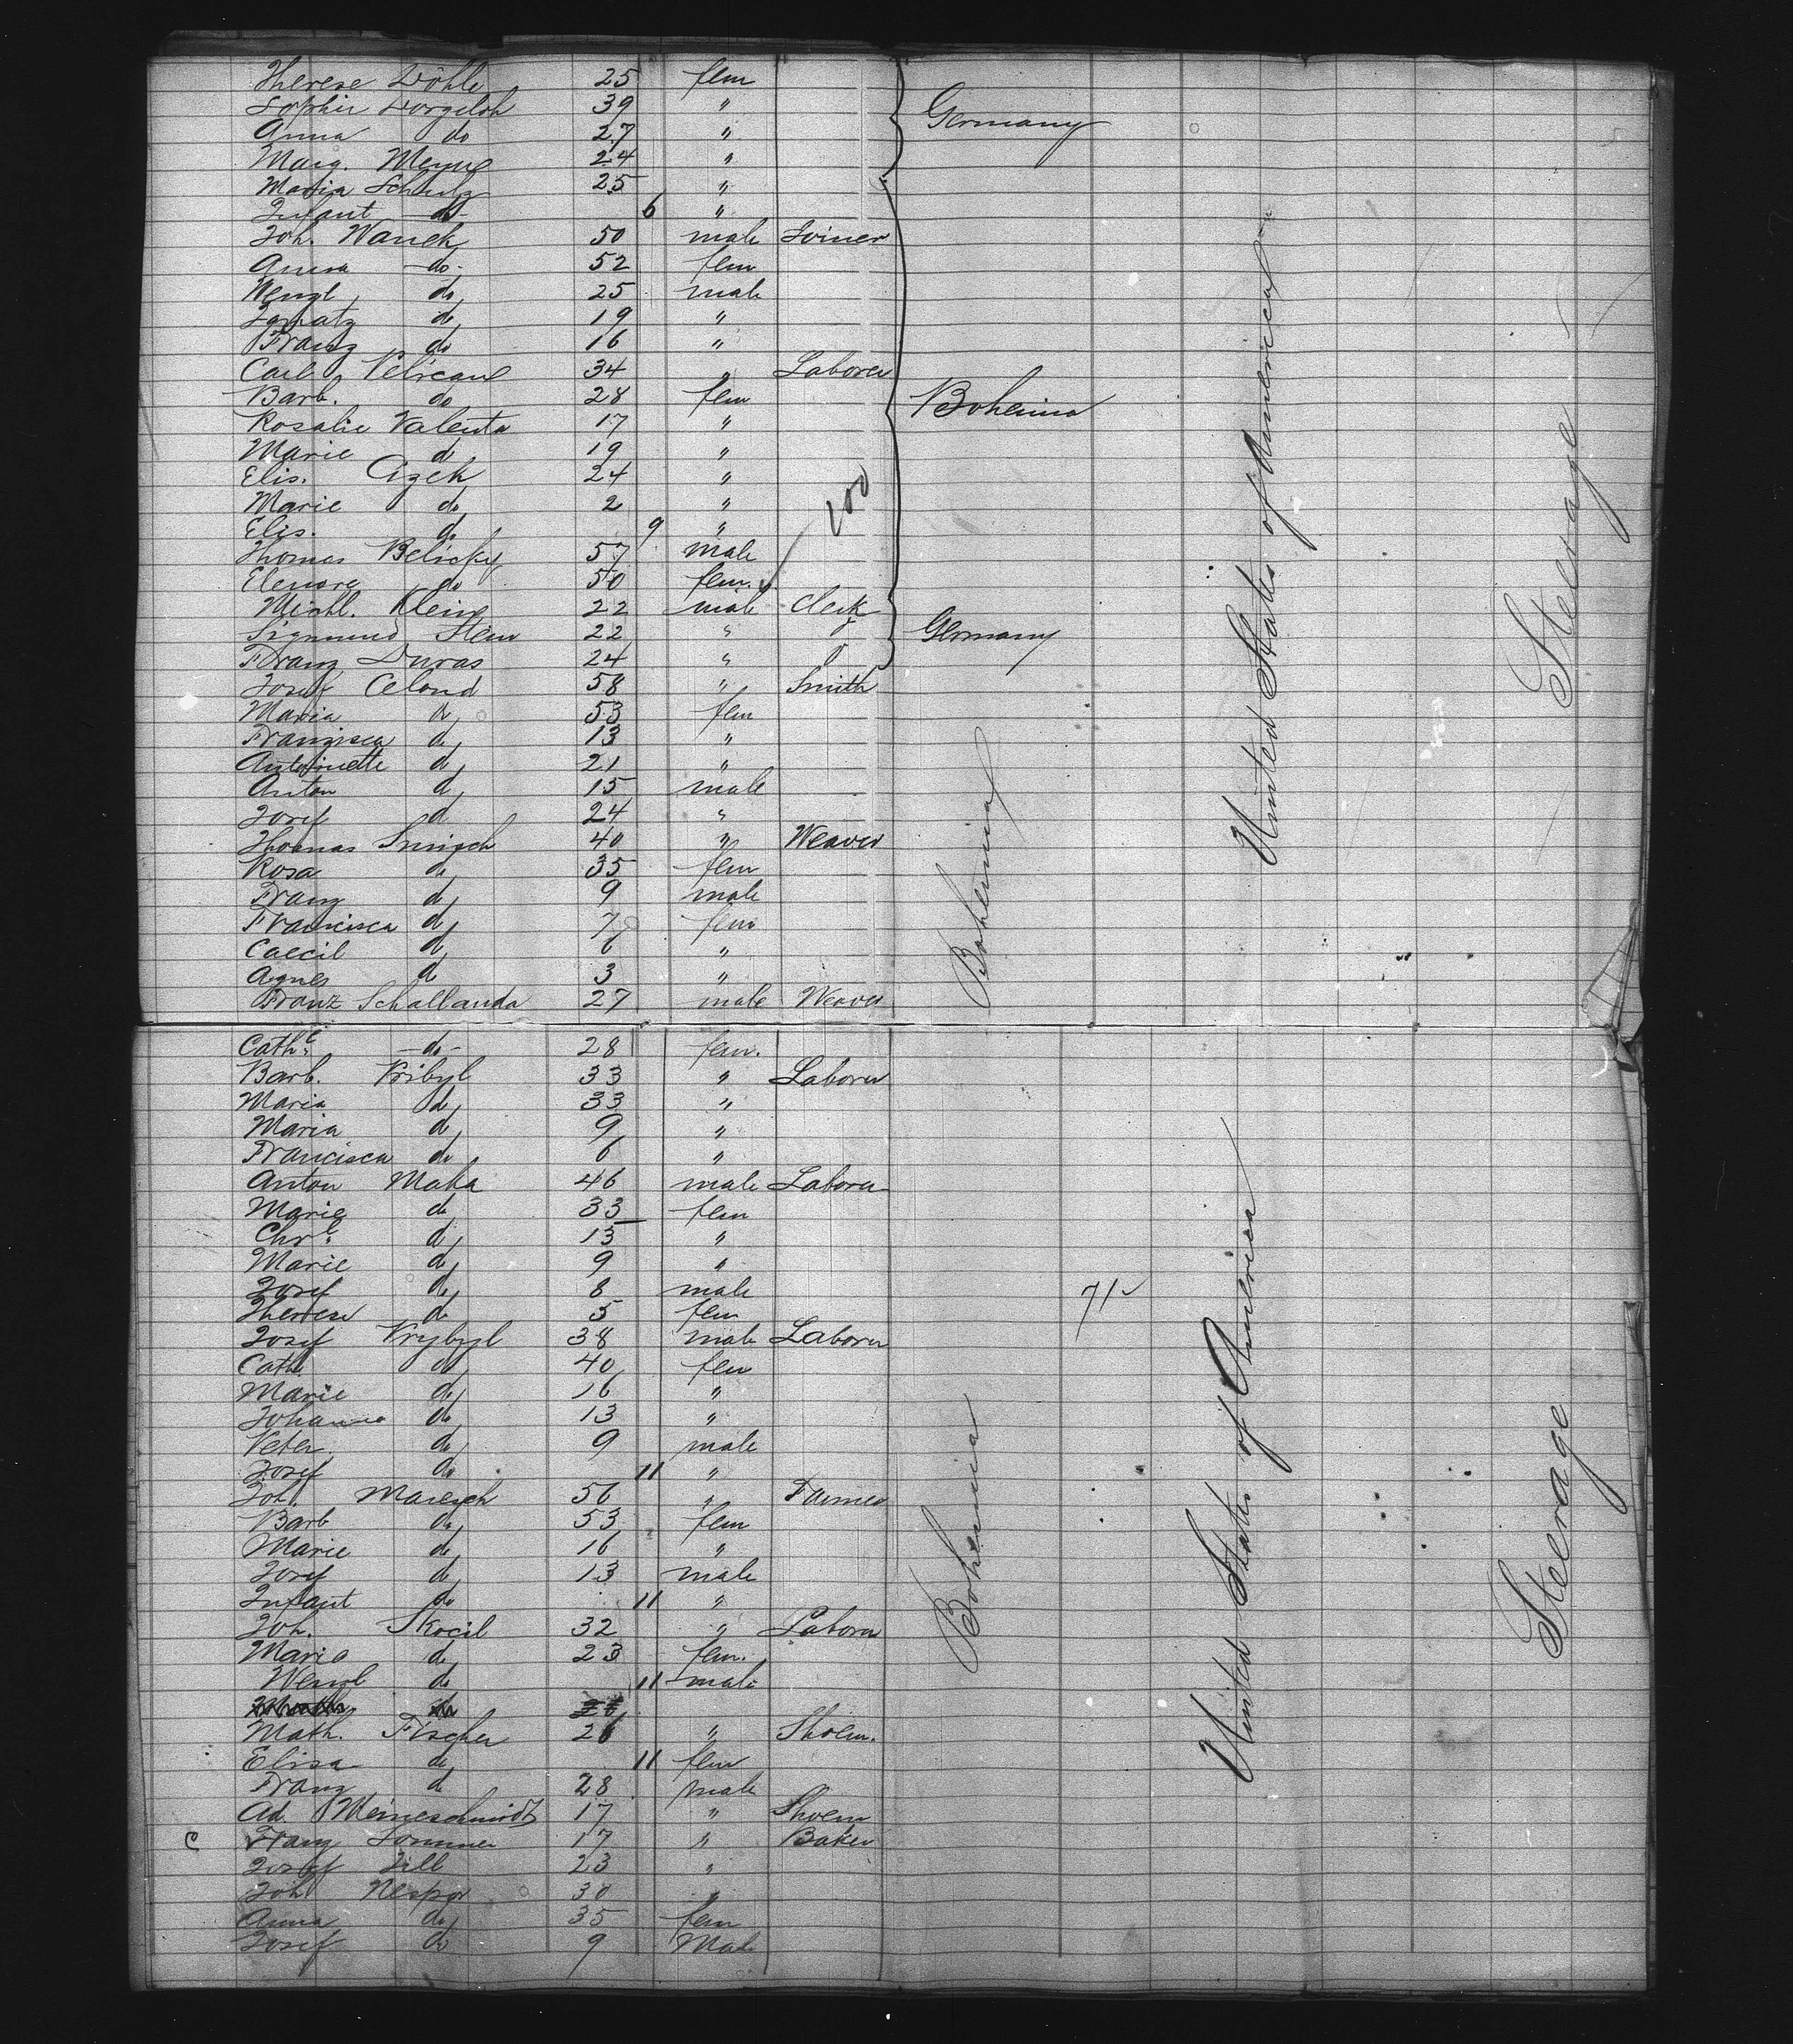 Therese Döhle 25 fem
Sophie Dorgeloh 39 "
Anna do 27 " Germany
Marg. Menne 24 "
Maria Schulz 25 "
Infant -do- 6 "
Joh. Wanek 50 male Joiner
Anna -do- 52 fem
Wenzl do 25 male
Ignatz do 19 "
Franz do 16 "
Carl Pelican 34 " Laborer
Barb. do 28 fem Bohemia
Rosalie Valenta 17 "
Marie do 19 "
Elis. Czek 24 "
Marie do 2 "
Elis. do 9 "
Thomas Belicky 57 male
Elenore do 50 fem.
100
Michl. Klein 22 male Clerk
Sigmund Stein 22 " Germany
Franz Duras 24 "
Josef Celond 58 " Smith
Maria do 53 fem
Franzisca do 13 "
Antoinette do 21 "
Anton do 15 male
Josef do 24 "
Thomas Smisch 40 " Weaver
Rosa do 35 fem
Franz do 9 male
Francisca do 7 fem
Caecil do 6 "
Agnes do 3 "
Franz Schallanda 27 male Weaver
Bohemia
United States of America
Steerage
Cath. -do- 28 fem.
Barb. Pribyl 33 " Laborer
Maria do 33 "
Maria do 9 "
Francisca do 6 "
Anton Maka 46 male Laborer
Marie do 33 fem
Chr. do 15 "
Marie do 9 "
Josef do 8 male
Therese do 5 fem
Josef Prybyl 38 male Laborer
Cath. do 40 fem
Marie do 16 "
Johanna do 13 "
Peter do 9 male
Josef do 11 "
Joh. Maresch 56 " Farmer
Barb do 53 fem
Marie do 16 "
Josef do 13 male
Infant do 11 "
Joh. Skocil 32 " Laborer
Marie do 23 fem.
Wenzl do 11 male
Math. Fischer 26 " Shoem.
Elisa do 11 fem
Franz do 28 male
Ad. Meineschmidt 17 " Shoem
C Franz Sommer 17 " Baker
Josef Zill 23 "
Joh Nespor 30 "
Anna do 35 fem
Josef do 9 Male
71
Bohemia
United States of America
Steerage